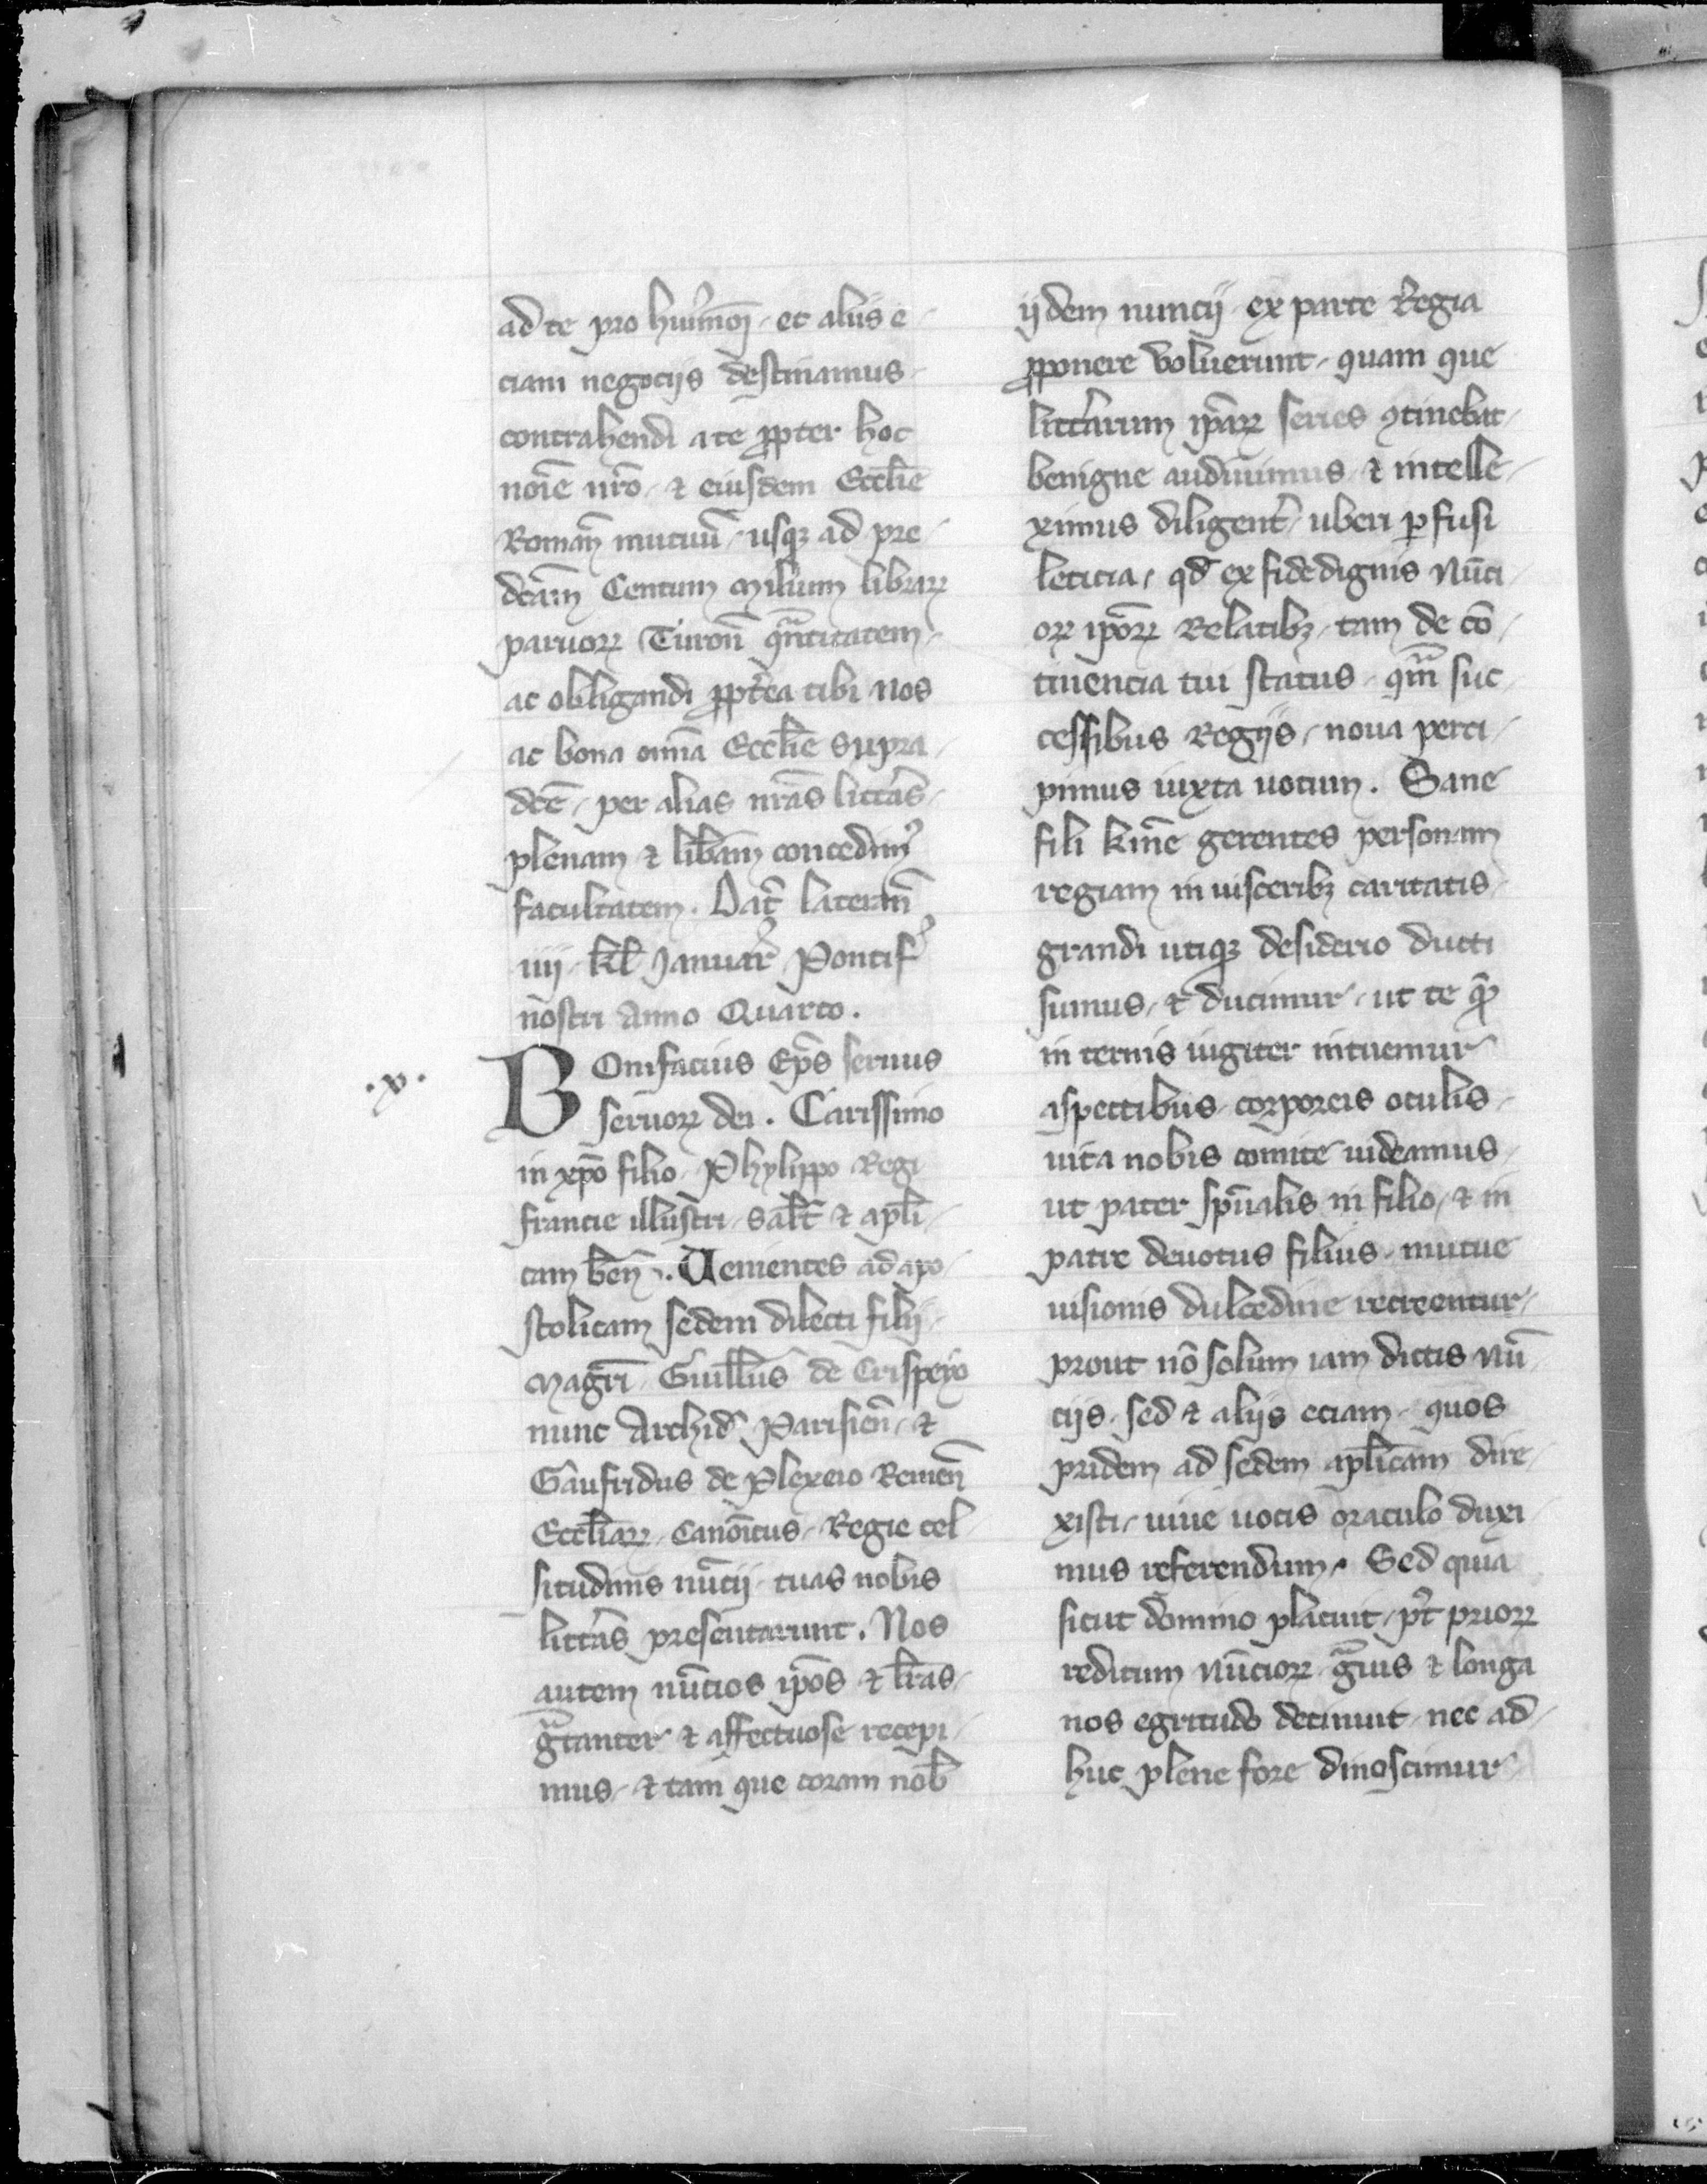 ad te pro huiꝰmoi et aliis e
ciam negocijs destinamus
contrahendi a te ꝓpter hoc
noīe nr̄o ⁊ eiusdem Eccl̄ie
Roman̄ mutuū usqꝫ ad pre
dc̄am Centum Milium librarꝝ
paruorꝝ Turon̄ qͣntitatem
ac obligandi ꝓpt̄ea tibi nos
ac bona om̄ia Eccl̄ie supra
dc̄e per alias nr̄as litt̄as
plenam ⁊ lib̄am concedimꝰ
facultatem. Dat̄ Lateran̄
iiij kl̄ Januar̄ Pontif̄
nostri Anno Quarto.
.v.
Bonifacius Ep̄s seruus
seruorꝝ dei. Carissimo
in xp̄o filio Phylippo Regi
francie illustri sal̄t ⁊ apl̄i
cam ben̄. Uenientes ad apo
stolicam sedem dilecti filij
Magr̄i Guill̄us de Crispeyo
nunc Archid̄ Parisien̄ ⁊
Gaufridus de Plexeio Remen̄
Eccl̄iarꝝ Canoīcus Regie cel
situdinis nūcij tuas nobis
litt̄as presentarunt. Nos
autem nūcios ip̄os ⁊ lr̄as
gͣtanter ⁊ affectuose recepi
mus ⁊ tam que coram nob̄
ijdem nuncij ex parte Regia
ꝓponere voluerunt quam que
litt̄arum ip̄arꝝ series ꝯtinebat
benigne audiuimus ⁊ intelle
ximus diligent̄ uberi ꝑfusi
leticia qd̄ ex fidedignis Nūci
orꝝ ip̄orꝝ Relatibꝫ tam de cō
tinencia tui status qͣm suc
cessibus Regijs noua perci
pimus iuxta uotum. Sane
fili kme gerentes personam
regiam in uisceribꝫ caritatis
grandi utiqꝫ desiderio ducti
sumus ⁊ ducimur ut te qͣꝫ
in ternis iugiter intuemur
aspectibus corporeis oculis
uita nobis comite uideamus
ut pater spūalis in filio ⁊ in
patre deuotus filius mutue
uisionis dulcedine recreentur
prout nō solum iam dictis nū
cijs sed ⁊ alijs eciam quos
pridem ad sedem apl̄icam dire
xisti uiue uocis oraculo duxi
mus referendum. Sed quia
sicut domino placuit pt̄ priorꝝ
reditum nūciorꝝ gͣuis ⁊ longa
nos egritudo detinuit nec ad
huc plene fore dinoscimur